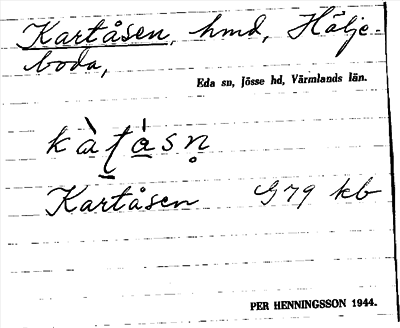 Kartåsen, hmd, Hälje-
boda,
Eda sn, Jösse hd, Värmlands län.
Kartåsen G79 kb
PER HENNINGSSON 1944.